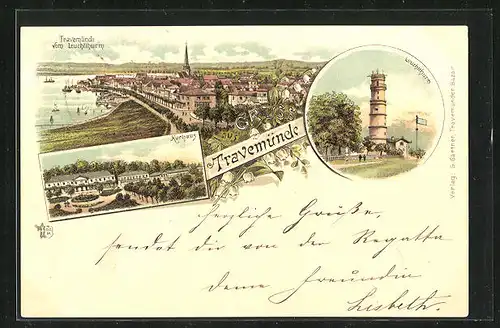 Travemünde
vom Leuchtthurm
Leuchtthurm
Kurhaus
Travemünde
herzliche Grüße,
sendet dir von der Regatta
deine Freundin
Lisbeth.
Verlag G. Gaertner, Travemünder Bazar